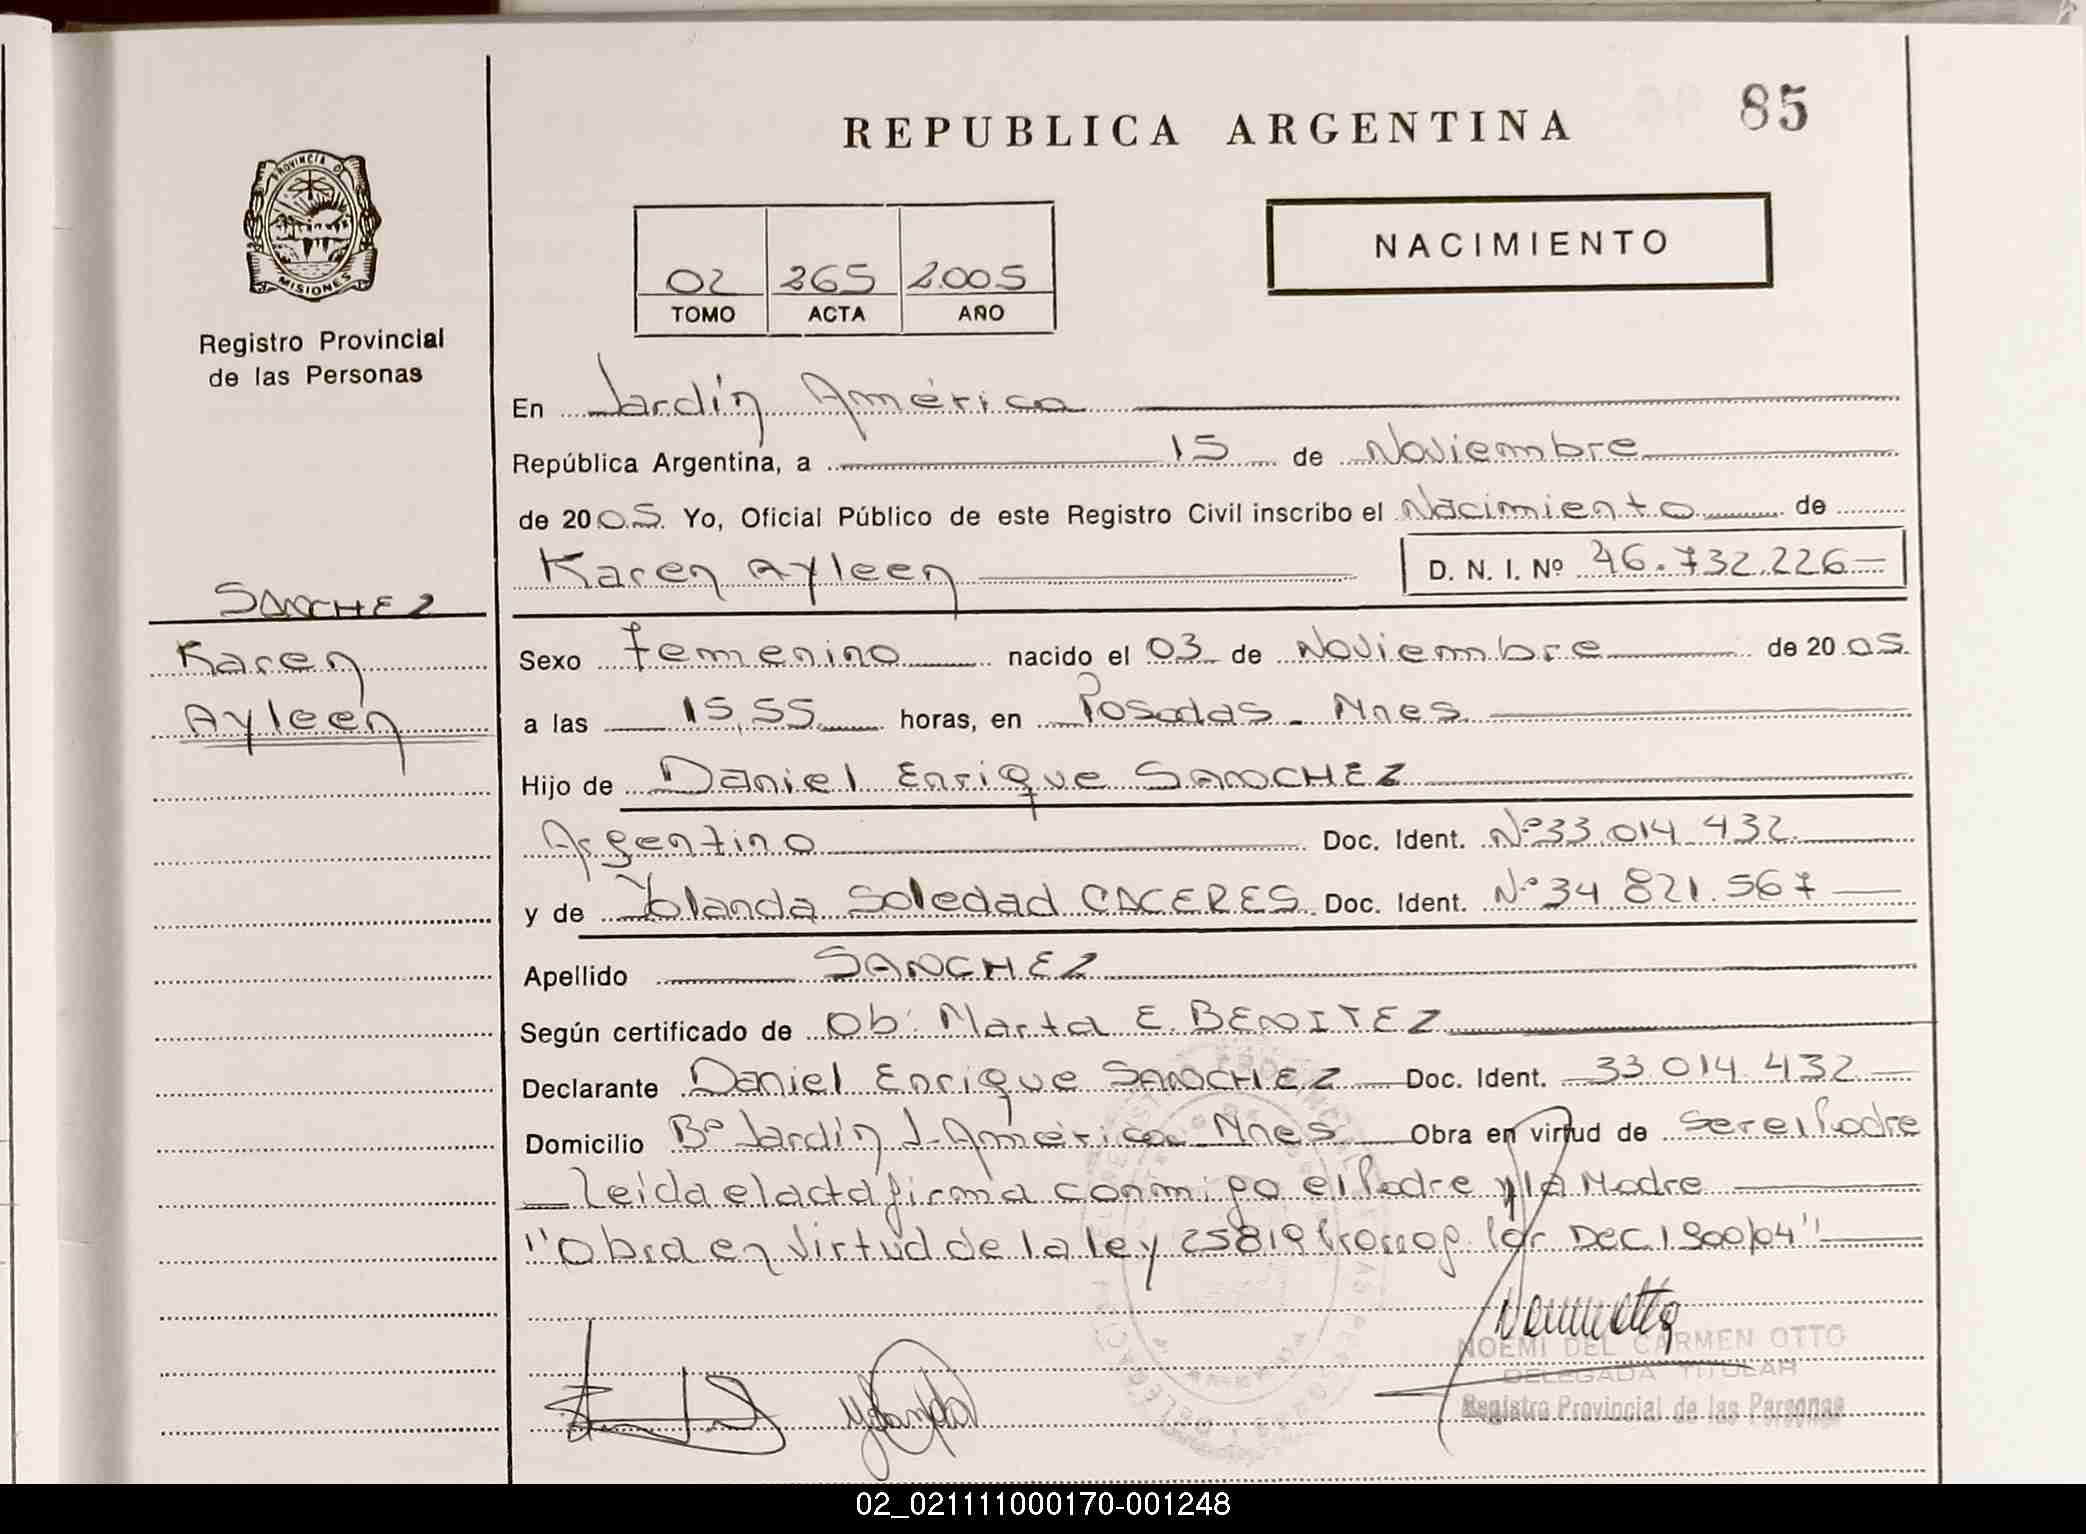 REPUBLICA ARGENTINA
85
PROVINCIA D
MISIONES
Registro Provincial
de las Personas
NACIMIENTO
02 265 2.005
TOMO ACTA AÑO
En Jardín América
República Argentina, a 15 de Noviembre
de 2005. Yo, Oficial Público de este Registro Civil inscribo el Nacimiento de
Karen Ayleen D. N. I. Nº 46.732.226
SANCHEZ
Karen
Ayleen
Sexo Femenino nacido el 03 de Noviembre de 2005.
a las 15,55 horas, en Posadas - Mnes
Hijo de Daniel Enrique SANCHEZ
Argentino Doc. Ident. Nº 33.014.432
y de Yolanda Soledad CACERES Doc. Ident. Nº 34.821.567
Apellido SANCHEZ
Según certificado de Ob: Marta E. BENITEZ
Declarante Daniel Enrique SANCHEZ Doc. Ident. 33.014.432
Domicilio Bº Jardín J. América Mnes Obra en virtud de ser el Padre
leída el acta firma conmigo el Padre y la Madre
"Obra en virtud de la ley 25819 Promog. Por Dec. 1900/04"
Yolanda
NOEMI DEL CARMEN OTTO
DELEGADA TITULAR
Registro Provincial de las Personas
02_021111000170-001248